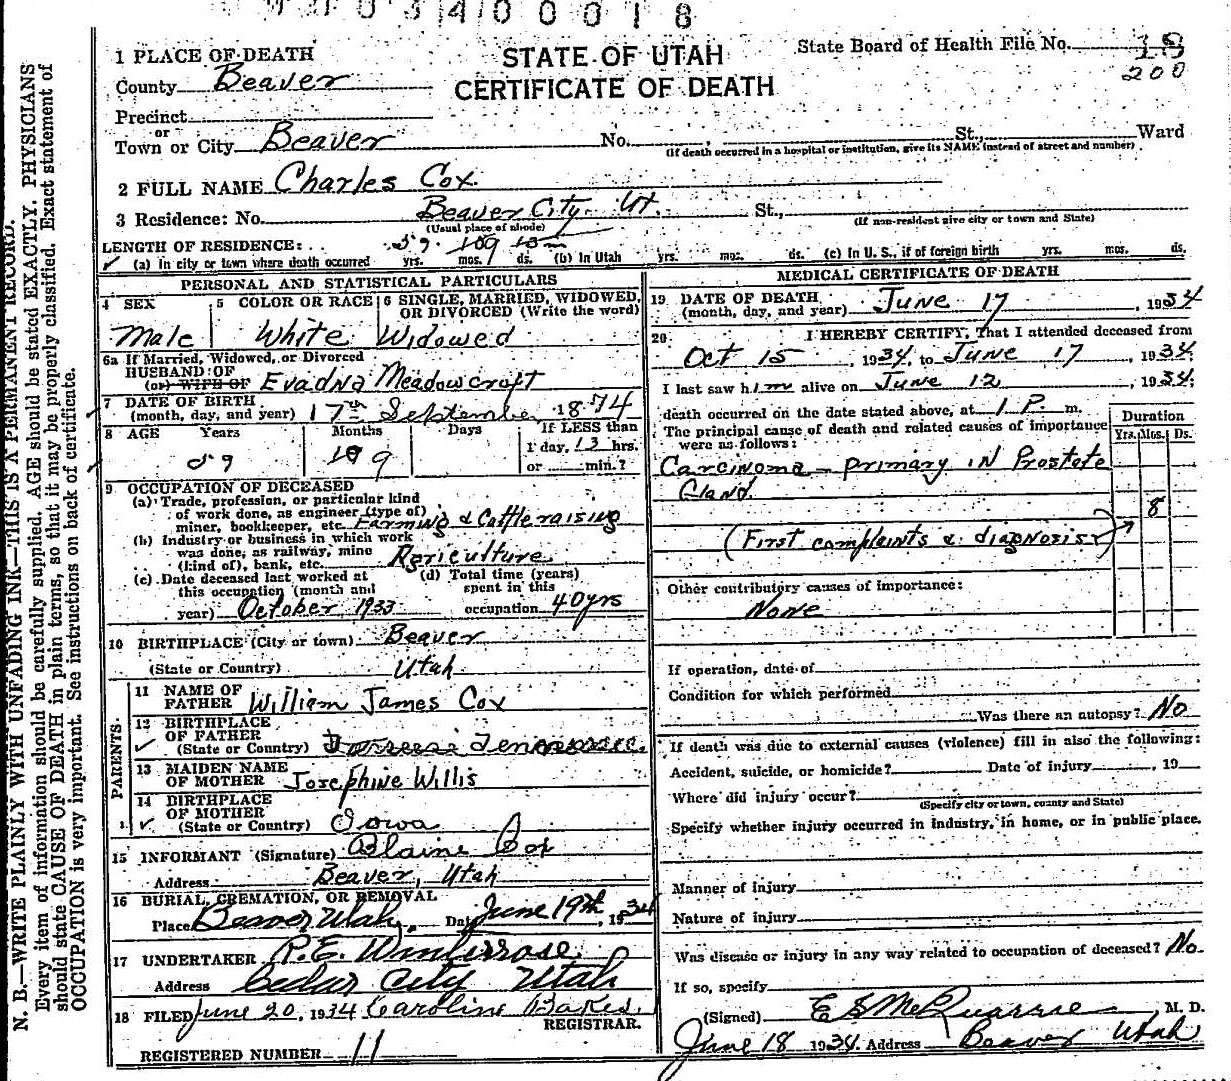 0 3 4 0 0 0 1 8
1 PLACE OF DEATH
STATE OF UTAH
CERTIFICATE OF DEATH
State Board of Health File No. 18
200
County Beaver
Precinct
or
Town or City Beaver No. , St., Ward
(If death occurred in a hospital or institution, give its NAME instead of street and number)
2 FULL NAME Charles Cox
3 Residence: No. Beaver City Ut. St.,
(Usual place of abode) (If non-resident give city or town and State)
LENGTH OF RESIDENCE:
(a) In city or town where death occurred 59 yrs. 9 mos. ds. (b) In Utah yrs. mos. ds. (c) In U. S., if of foreign birth yrs. mos. ds.
PERSONAL AND STATISTICAL PARTICULARS
4 SEX
Male
5 COLOR OR RACE
White
6 SINGLE, MARRIED, WIDOWED,
OR DIVORCED (Write the word)
Widowed
6a If Married, Widowed, or Divorced
HUSBAND OF
(or) WIFE OF Evadna Meadowcroft
7 DATE OF BIRTH
(month, day, and year) 17th September 1874
8 AGE Years Months Days If LESS than
1 day, 13 hrs.
or min.?
59 9
9 OCCUPATION OF DECEASED
(a) Trade, profession, or particular kind
of work done, as engineer (type of)
miner, bookkeeper, etc. Farming & Cattle raising
(b) Industry or business in which work
was done, as railway, mine
(kind of), bank, etc. Agriculture
(c) Date deceased last worked at
this occupation (month and
year) October 1933
(d) Total time (years)
spent in this
occupation 40 yrs
10 BIRTHPLACE (City or town) Beaver
(State or Country) Utah
PARENTS
11 NAME OF
FATHER William James Cox
12 BIRTHPLACE
OF FATHER
(State or Country) Tennessee
13 MAIDEN NAME
OF MOTHER Josephine Willis
14 BIRTHPLACE
OF MOTHER
(State or Country) Iowa
15 INFORMANT (Signature) Blaine Cox
Address Beaver, Utah
16 BURIAL, CREMATION, OR REMOVAL
Place Beaver Utah. Date June 19th, 1934
17 UNDERTAKER P.E. Winterrose
Address Cedar City Utah
18 FILED June 20, 1934 Caroline Baker
REGISTRAR.
REGISTERED NUMBER 11
MEDICAL CERTIFICATE OF DEATH
19 DATE OF DEATH
(month, day, and year) June 17, 1934
20 I HEREBY CERTIFY, That I attended deceased from
Oct 15, 1934, to June 17, 1934;
I last saw him alive on June 12, 1934;
death occurred on the date stated above, at 1 P. m.
The principal cause of death and related causes of importance
were as follows:
Duration
Yrs. Mos. Ds.
Carcinoma - primary in Prostate
Gland.
8
(First complaints & diagnosis)
Other contributory causes of importance:
None
If operation, date of
Condition for which performed
Was there an autopsy? No
If death was due to external causes (violence) fill in also the following:
Accident, suicide, or homicide? Date of injury , 19
Where did injury occur?
(Specify city or town, county and State)
Specify whether injury occurred in industry, in home, or in public place.
Manner of injury
Nature of injury
Was disease or injury in any way related to occupation of deceased? No
If so, specify
(Signed) E S McQuarrie, M. D.
June 18 1934. Address Beaver Utah
N. B.—WRITE PLAINLY WITH UNFADING INK—THIS IS A PERMANENT RECORD.
Every item of information should be carefully supplied. AGE should be stated EXACTLY. PHYSICIANS
should state CAUSE OF DEATH in plain terms, so that it may be properly classified. Exact statement of
OCCUPATION is very important. See instructions on back of certificate.